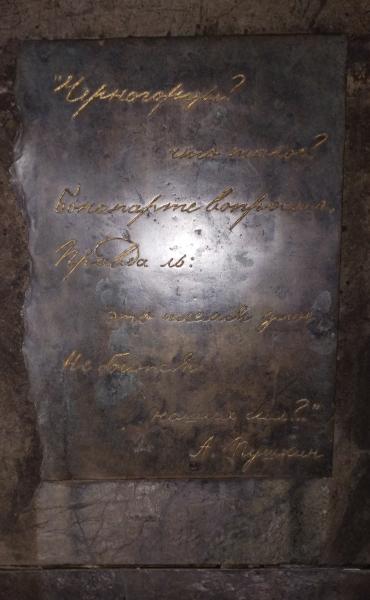 "Черногорцы?
что такое?
Бонапарте вопросил.
Правда ль:
это племя злое
Не боится
наших сил?"
А. Пушкин